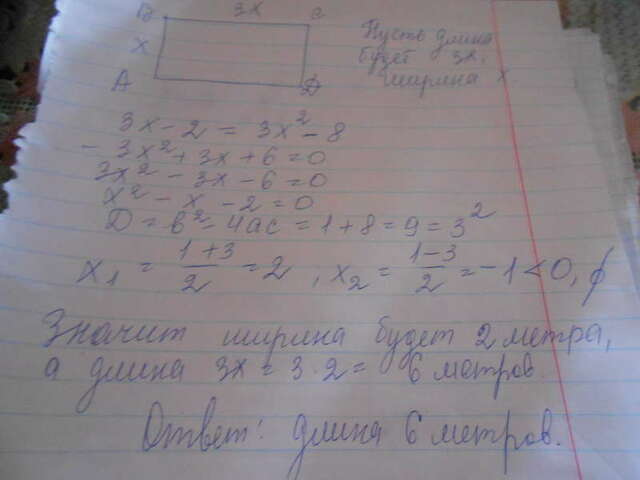 B 3x C
Пусть длина
будет 3x,
ширина x.
x
A D
3x - 2 = 3x² - 8
- 3x² + 3x + 6 = 0
3x² - 3x - 6 = 0
x² - x - 2 = 0
D = b² - 4ac = 1 + 8 = 9 = 3²
x₁ = (1+3)/2 = 2 , x₂ = (1-3)/2 = -1 < 0, ∅
Значит ширина будет 2 метра,
а длина 3x = 3·2 = 6 метров.
Ответ: длина 6 метров.